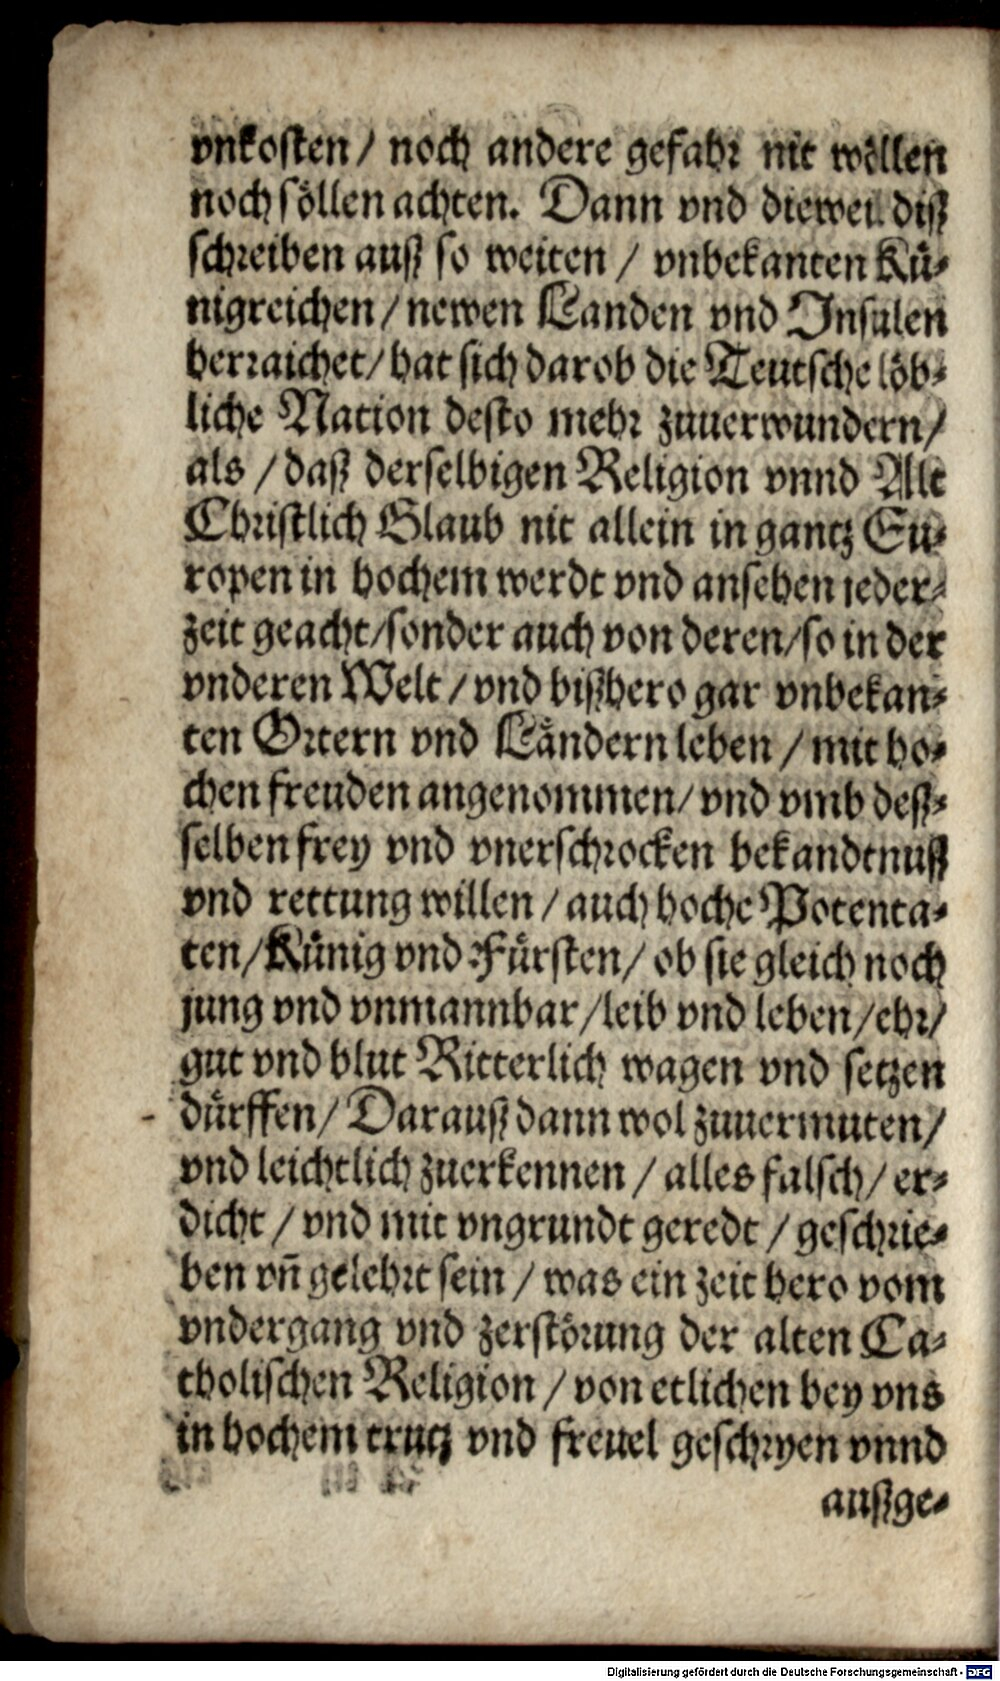 vnkosten / noch andere gefahr nit wöllen
noch söllen achten. Dann vnd diewei. diß
schreiben auß so weiten / vnbekanten Kü-
nigreichen / newen Landen vnd Insulen
herraichet / hat sich darob die Teutsche löb-
liche Nation desto mehr zuuerwundern /
als / daß derselbigen Religion vnnd Alt
Christlich Glaub nit allein in gantz Eu-
ropen in hochem werdt vnd ansehen ieder-
zeit geacht / sonder auch von deren / so in der
vnderen Welt / vnd bißhero gar vnbekan-
ten Ortern vnd Ländern leben / mit ho-
chen freuden angenommen / vnd vmb deß-
selben frey vnd vnerschrocken bekandtnuß
vnd rettung willen / auch hoche Potenta-
ten / Künig vnd Fürsten / ob sie gleich noch
jung vnd vnmannbar / leib vnd leben / ehr /
gut vnd blut Ritterlich wagen vnd setzen
dürffen / Darauß dann wol zuuermuten /
vnd leichtlich zuerkennen / alles falsch / er-
dicht / vnd mit vngrundt geredt / geschrie-
ben vñ gelehrt sein / was ein zeit hero vom
vndergang vnd zerstörung der alten Ca-
tholischen Religion / von etlichen bey vns
in hochem trutz vnd freuel geschryen vnnd
außge-
Digitalisierung gefördert durch die Deutsche Forschungsgemeinschaft - DFG